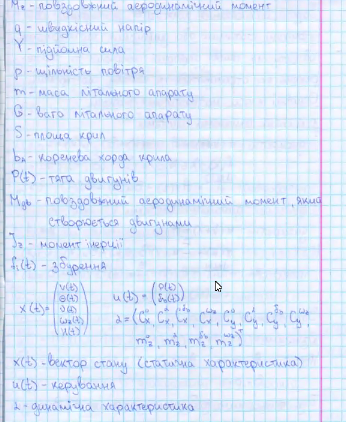 Mz - повздовжний аеродинамічний момент
q - швидкісний напір
Y - підйомна сила
ρ - щільність повітря
m - маса літального апарату
G - вага літального апарату
S - площа крил
bA - коренева хорда крила
P(t) - тяга двигунів
Mдв - повздовжний аеродинамічний момент, який
створюється двигунами
Jz - момент інерції
fi(t) - збурення
x(t) = (V(t) θ(t) ϑ(t) ωz(t) H(t)) u(t) = (P(t) δв(t))
x(t) - вектор стану (статична характеристика)
u(t) - керування
2 - динамічна характеристика